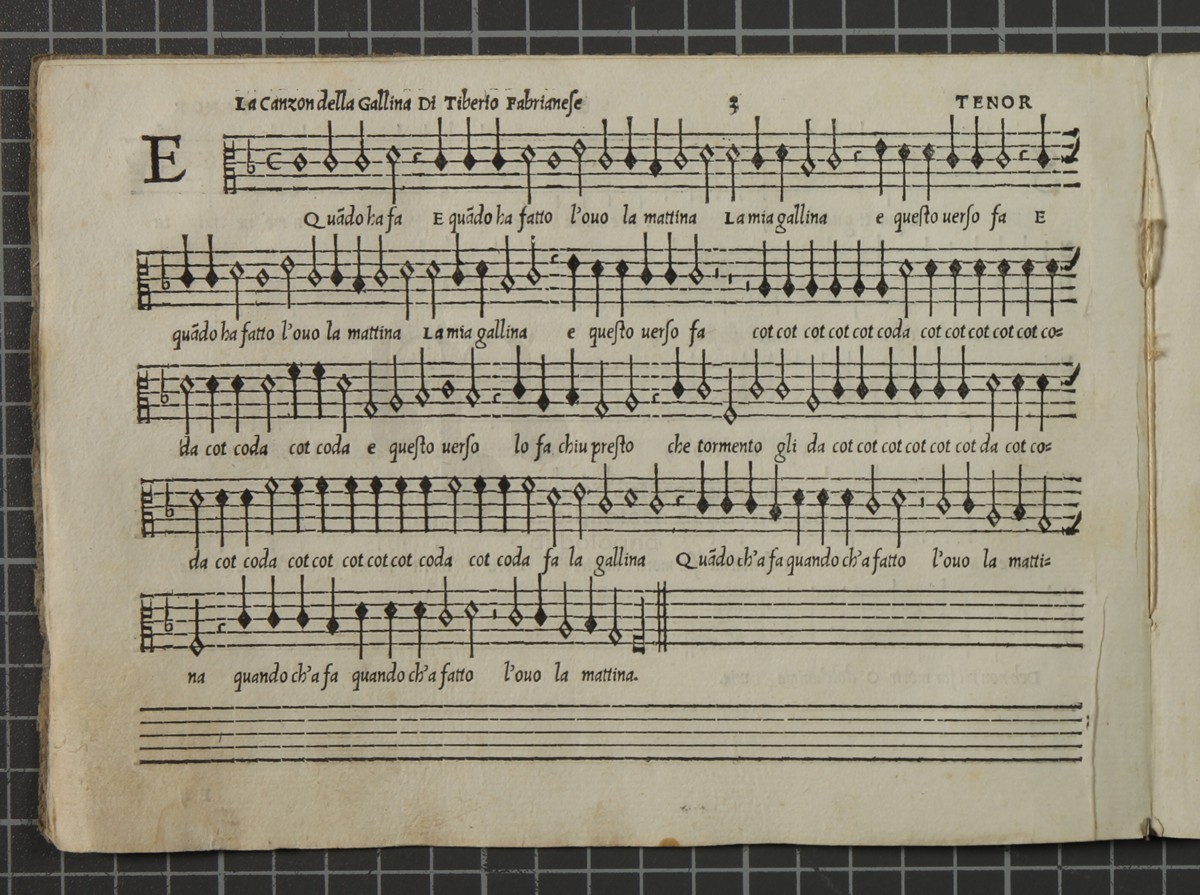 La Canzon della Gallina Di Tiberio Fabrianeſe 3 TENOR
E
Quādo ha fa E quādo ha fatto l'ouo la mattina La mia gallina e queſto uerſo fa E
quādo ha fatto l'ouo la mattina La mia gallina e queſto uerſo fa cot cot cot cot cot coda cot cot cot cot cot co=
da cot coda cot coda e queſto uerſo lo fa chiu preſto che tormento gli da cot cot cot cot cot cot da cot co=
da cot coda cot cot cot cot cot coda cot coda fa la gallina Quādo ch'a fa quando ch'a fatto l'ouo la matti=
na quando ch'a fa quando ch'a fatto l'ouo la mattina.